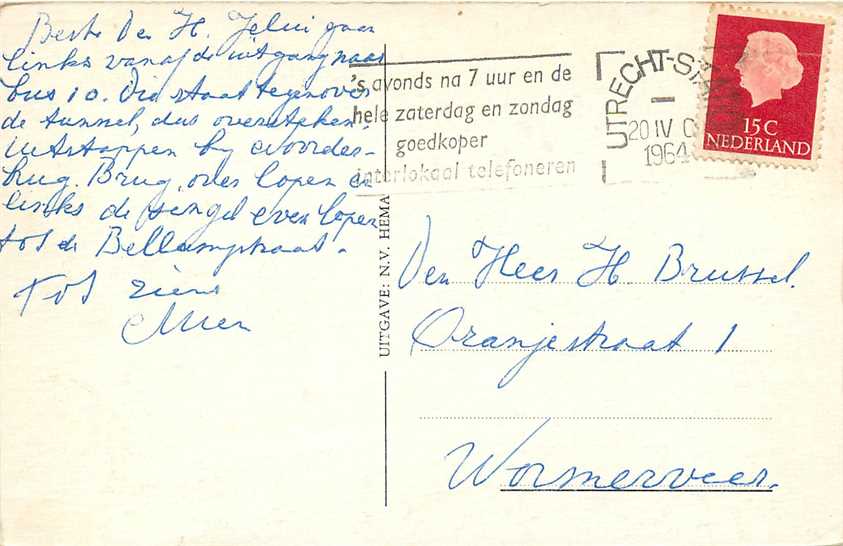 Beste Den H. Jelui gaan
links vanaf de uitgang naar
bus 10. Die staat tegenover
de tunnel, dus oversteken.
Uitstappen by
brug. Brug over lopen en
links de singel even lopen
tot de Bellamystraat.
Tot ziens
Mien
UITGAVE: N.V. HEMA
's avonds na 7 uur en de
hele zaterdag en zondag
goedkoper
interlokaal telefoneren
UTRECHT-STATION
20 IV
1964
15C
NEDERLAND
Den Heer H Brussel.
Oranjestraat 1
Wormerveer.